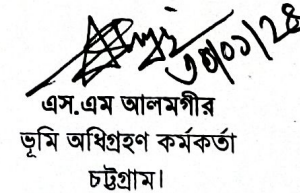 ৩০/০১/২৪
এস.এম আলমগীর
ভূমি অধিগ্রহণ কর্মকর্তা
চট্টগ্রাম।